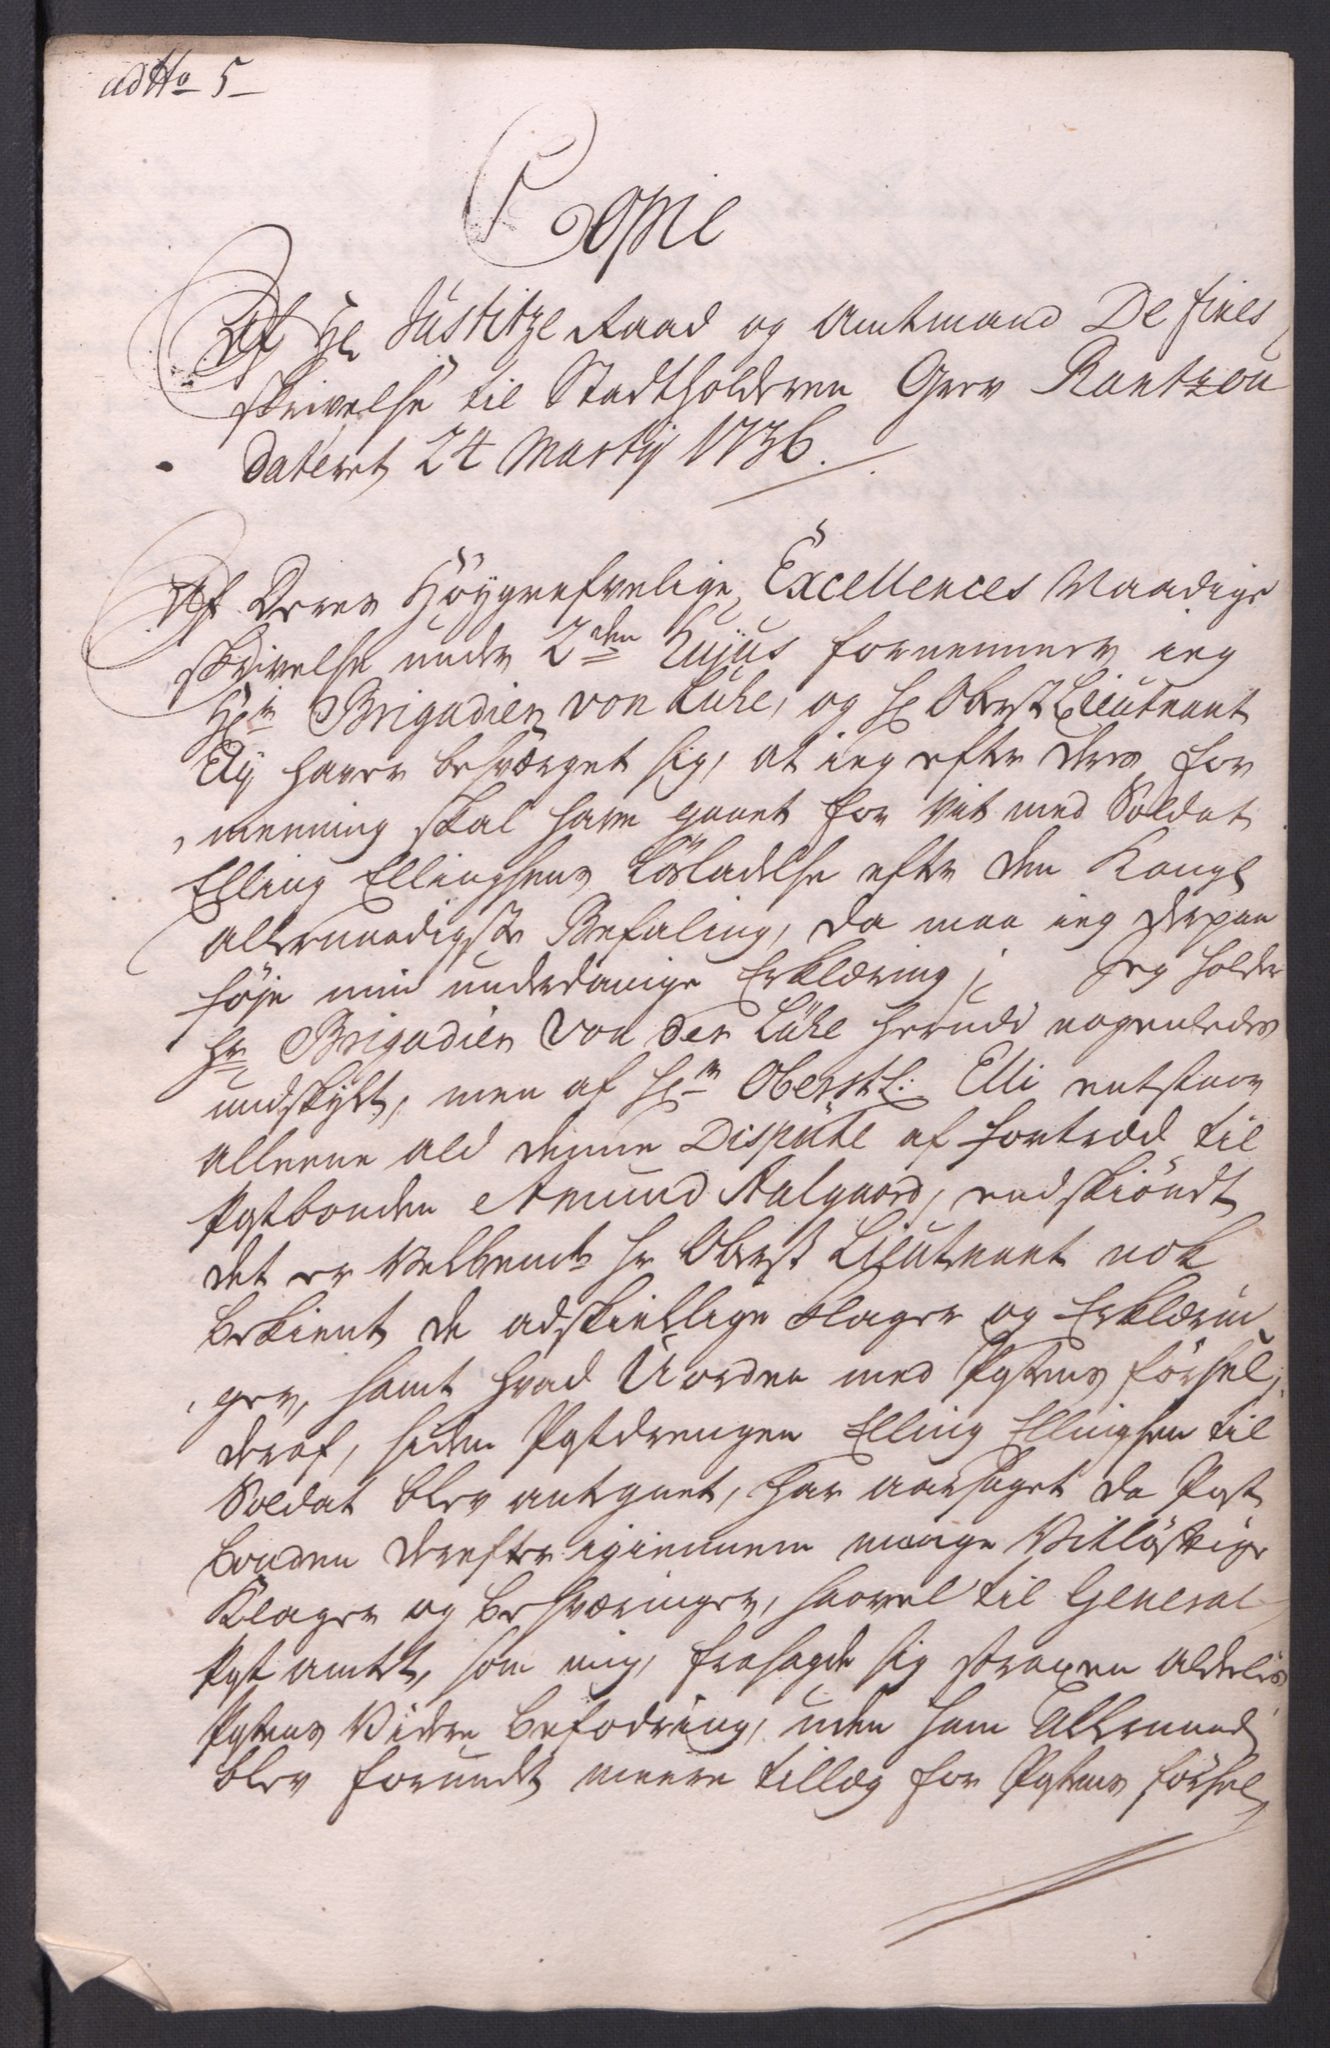 ad No 5
Copie
Af Hr Justitze Raad og Amtmand De fines
skrivelse til Stadtholderen Grev Rantzou
dateret 24 Martij 1736.
Af Deres Höygrefvelige Excellences Naadige
skrivelse under 2den hujus fornemmer ieg
Hrn Brigadier von Lühe, og Hr Oberst Lieutnant
Ely haver besværget sig, at ieg efter deres for
menning skal have gaaet for vit med Soldat
Elling Ellingsens Lösladelse efter den Kongl
allernaadigste Befaling, da maa ieg derpaa
föje min underdanige Erklæring; Jeg holder
Hr Brigadier Von der Lühe herudi nogenledes
undskylt, men af Hrn Oberstl: Elli entstaar
alleene ald denne Dispüte af fortræd til
Postbonden Amund Aalgaard, endskiöndt
det er velbemte Hr Oberst Lieutnant nok
bekient de adskiellige Klager og Erklærin
ger, samt hvad Uorden med Postens försel,
deraf, siden Postdrengen Elling Ellingsen til
Soldat blev antegnet, har aarsaget da Post
bonden derefter igiennem mange Vitlöftige
Klager og besværinger, saavel til General
Post amtet, som mig, frasagde sig straxen alderlis
Postens Videre befodring, uden ham Allernaad
blev forundt meere tillæg for Postens försel,